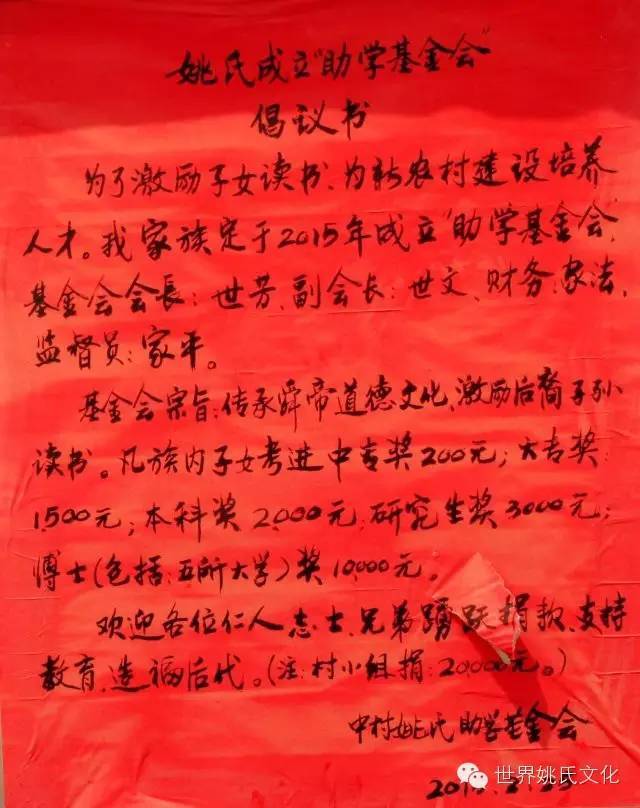 姚氏成立"助学基金会"
倡议书
为了激励子女读书、为新农村建设培养
人才。我家族定于2015年成立"助学基金会"
基金会会長：世芳、副会长：世文、财务：家法、
监督员：家平。
基金会宗旨：传承舜帝道德文化、激励后裔子孙
读书。凡族内子女考进中专奖200元；大专奖：
1,500元；本科奖2,000元；研究生奖3000元；
博士(包括：五所大学)奖10,000元。
欢迎各位仁人志士、兄弟踴跃捐款、支持
教育、造福后代。(注：村小组捐：20,000元。)
中村姚氏助学基金会
2015.2.23
世界姚氏文化